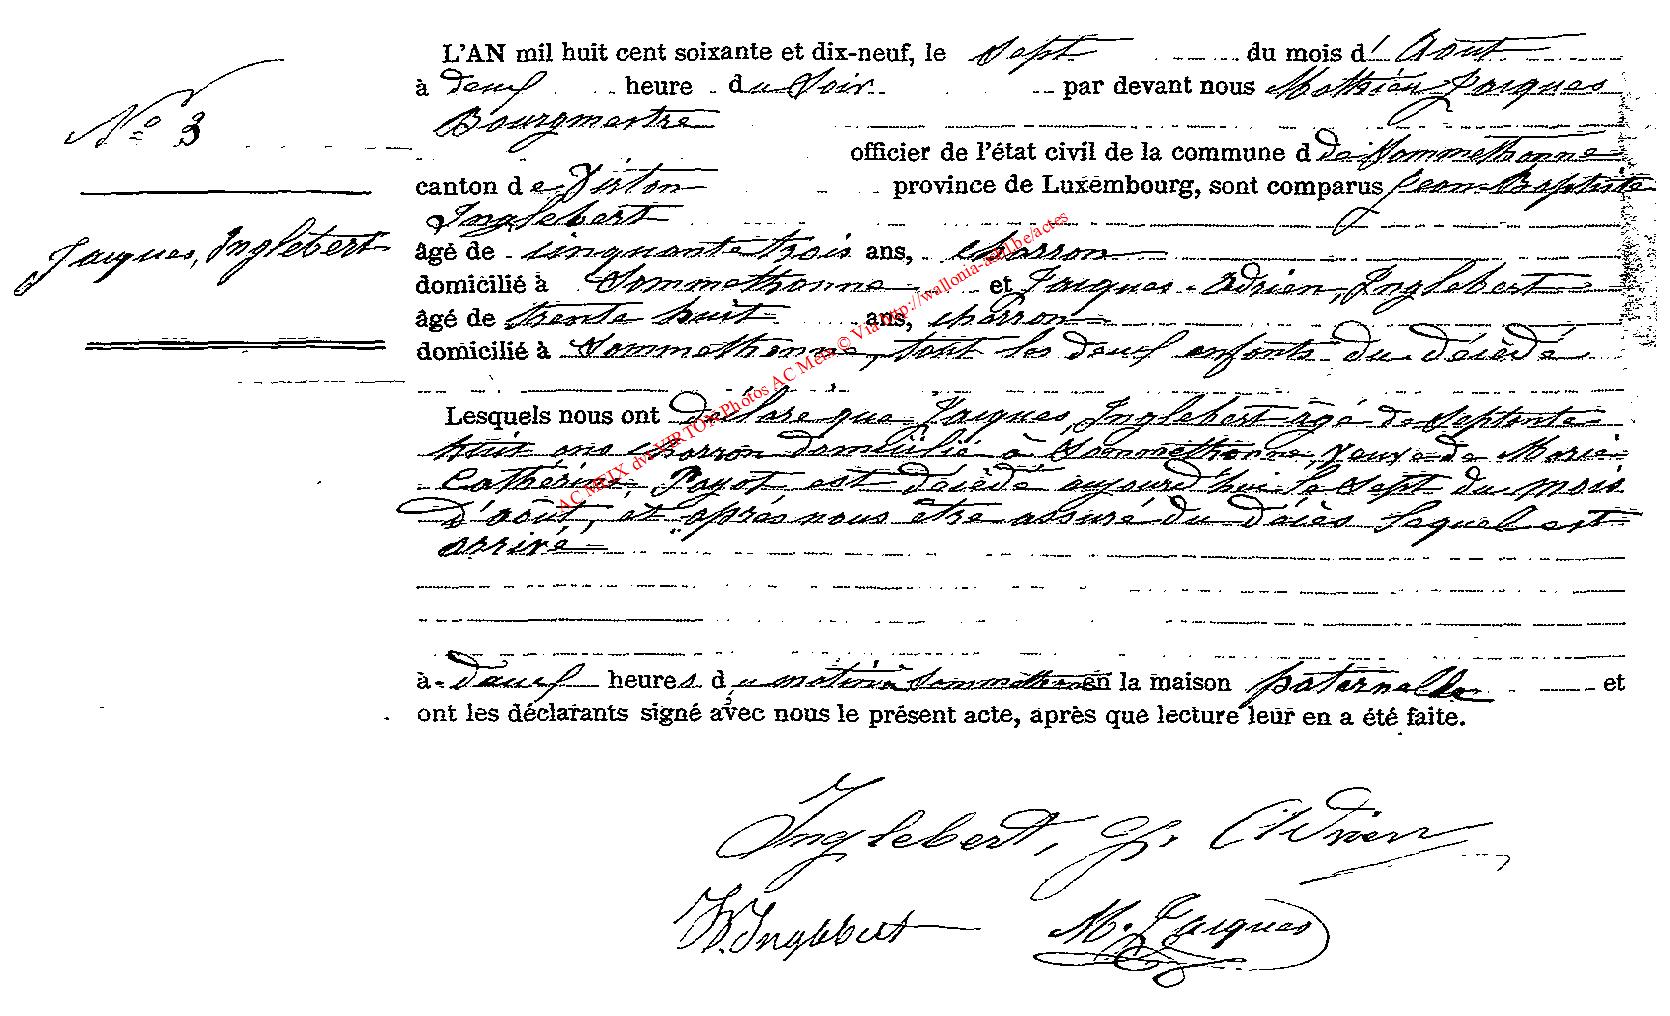 L'AN mil huit cent soixante et dix-neuf, le Sept du mois d' Août
à deux heure du Soir par devant nous Mathieu Jacques
Bourgmestre
N° 3
officier de l'état civil de la commune d de Sommethonne
canton de Virton province de Luxembourg, sont comparus Jean-Baptiste
Inglebert
Jacques, Inglebert
âgé de cinquante trois ans, charron
domicilié à Sommethonne et Jacques-Adrien, Inglebert
âgé de trente huit ans, charron
domicilié à Sommethonne, tout les deux enfants du décédé
Lesquels nous ont déclare que Jacques, Inglebert âgé de Septente
huit ans charron domicilié à Sommethonne, veuve de Marie
Cathérine, Payot est décédé aujourd'hui le Sept du mois
d'août, et après nous être assuré du décès lequel est
arrivé
à deux heures du matin à Sommethonne en la maison paternelle et
ont les déclarants signé avec nous le présent acte, après que lecture leur en a été faite.
Inglebert, J. Adrien
Inglebert M. Jacques
AC MEIX dvt VIRTON Photos AC Meix © Via http://wallonia-asbl.be/actes